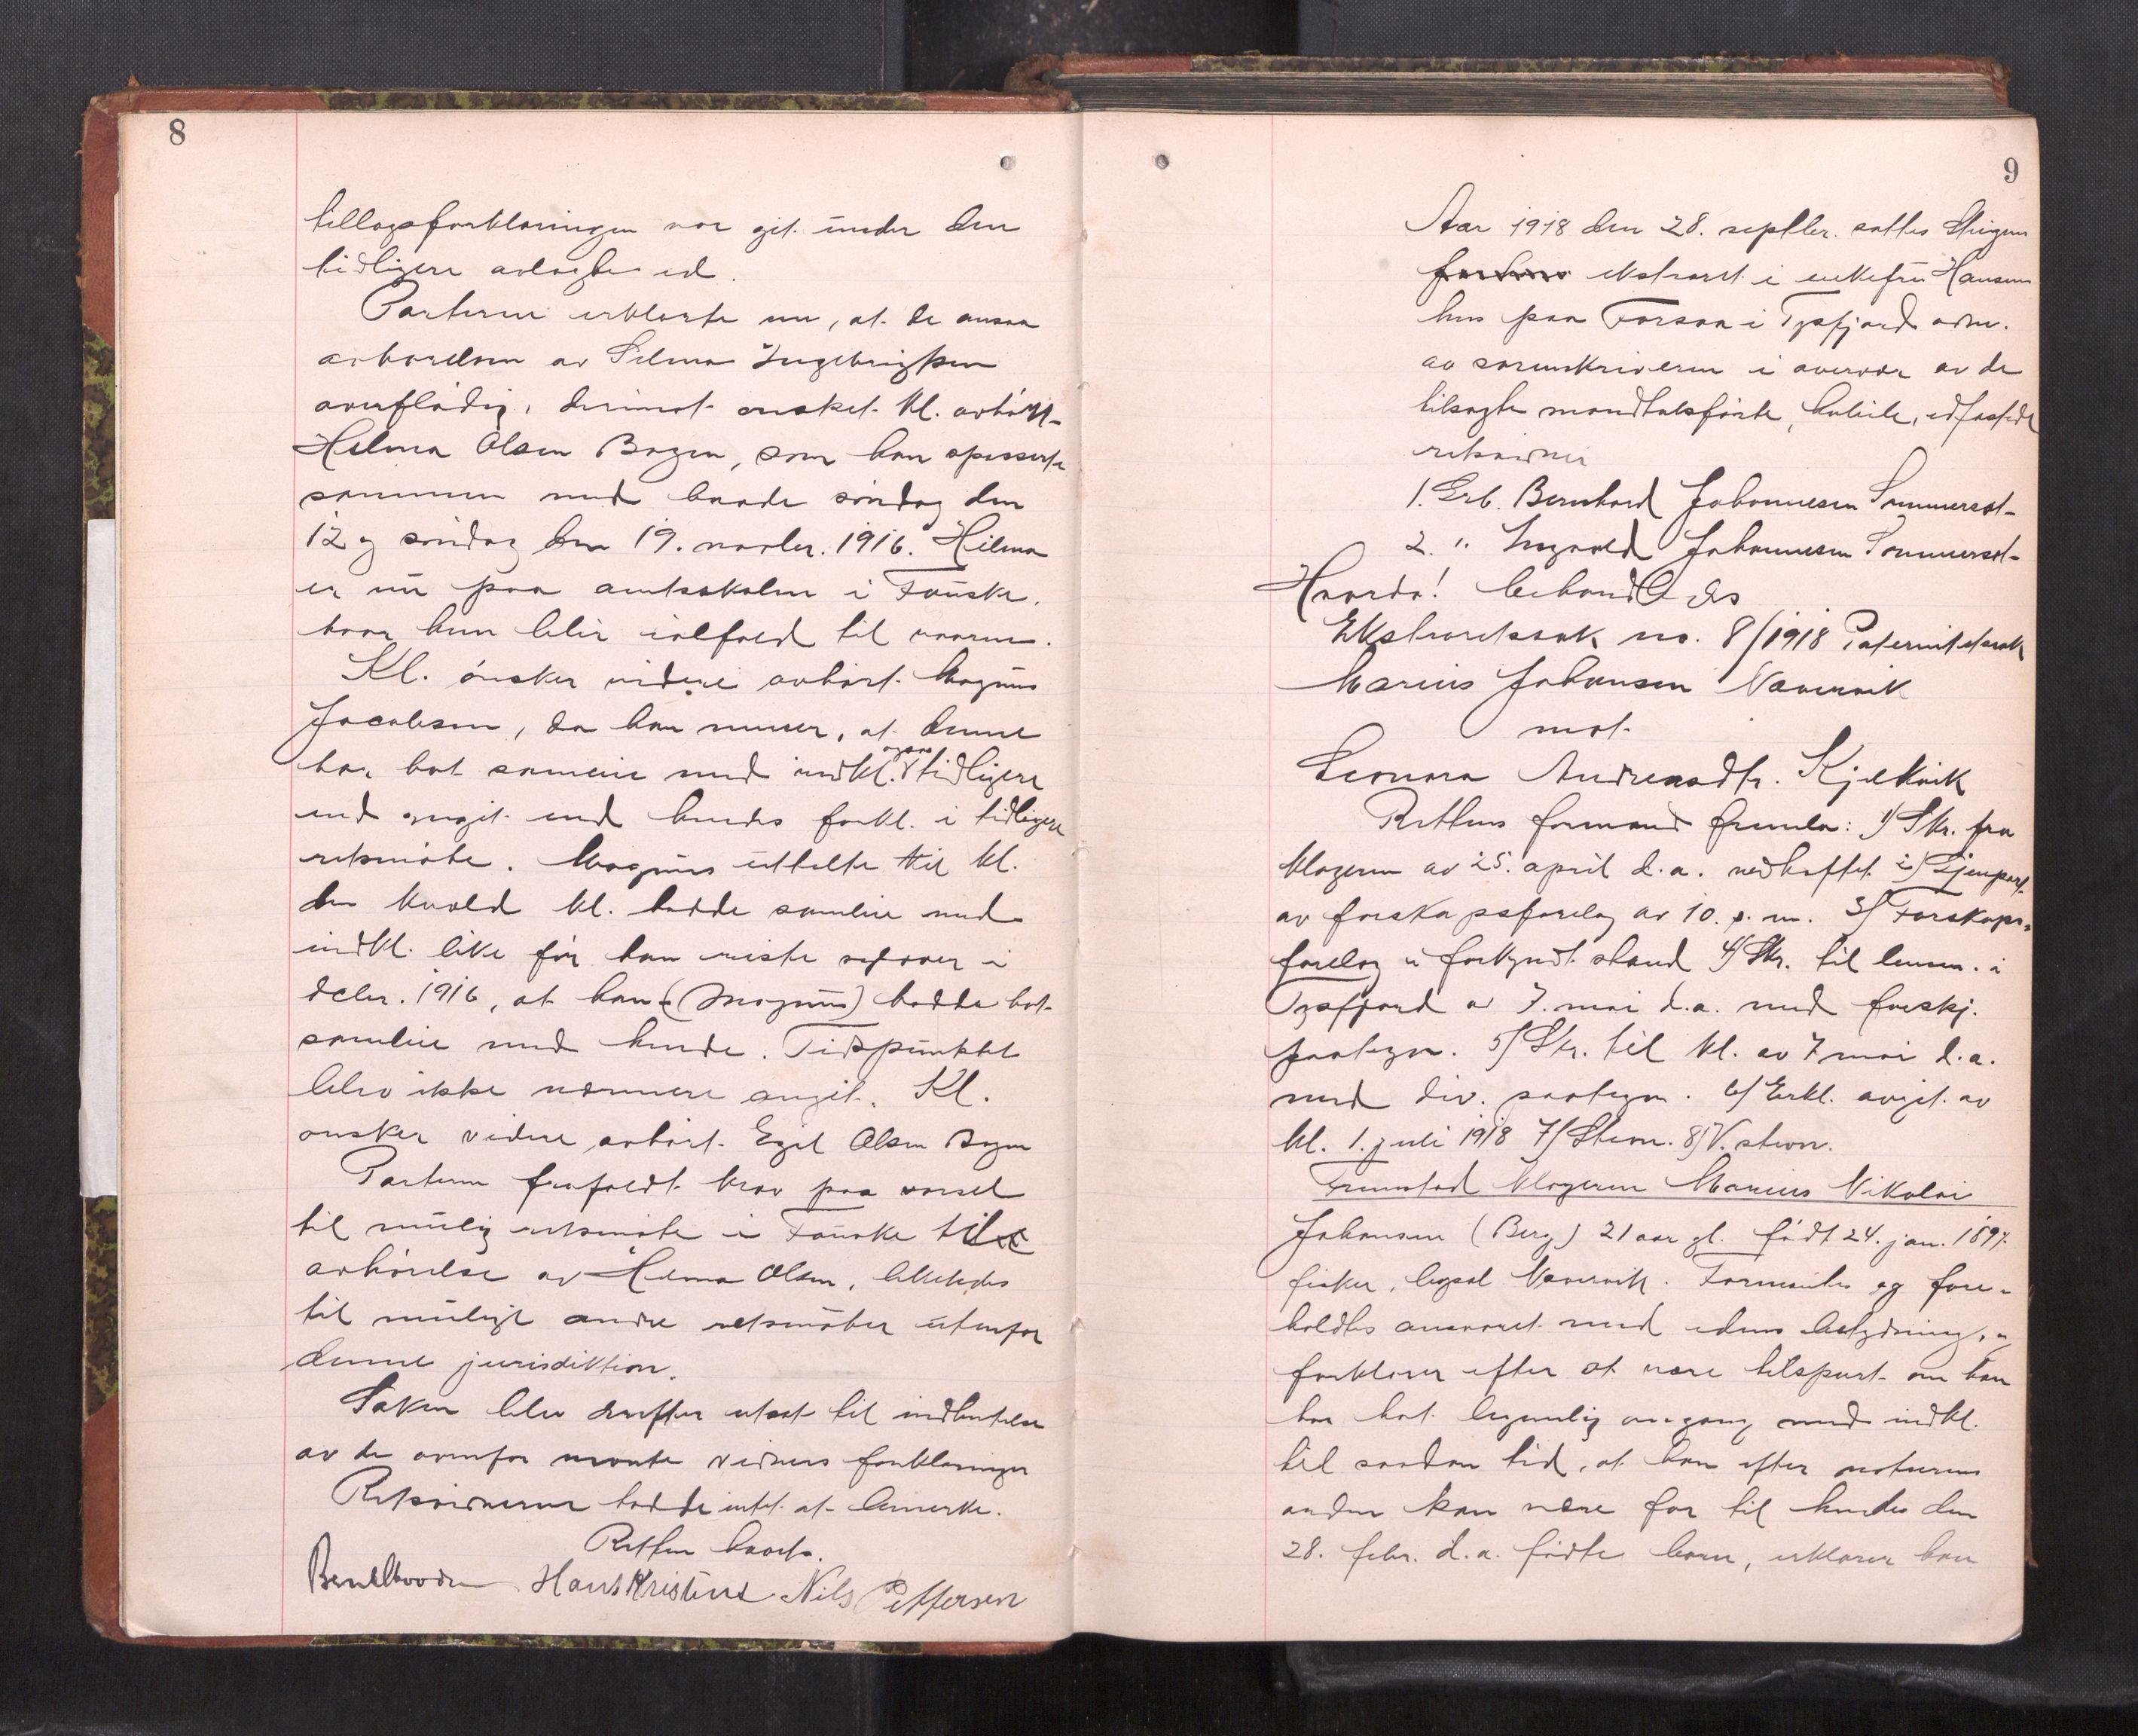 8
tillægsforklaringen var git under den
tidligere avlagte ed.
Parterne erklærte nu, at de ansaa
avhørelsen av Selma Ingebrigtsen
overflødig, derimot ønsket kl. avhørt
Helma Olsen Bogen, som han spasserte
sammen med baade søndag den
12 og søndag den 19. novbr. 1916. Hilma
er nu paa amtsskolen i Fauske,
hvor hun blir ialfald til vaaren.
Kl. ønsker videre avhørt Magnus
Jacobsen, da han mener, at denne
har hat samleie med indkl. ogsaa tidligere
end angit ved hendes forkl. i tidligere
retsmøte. Magnus uttalte til kl.
den kvæld kl. hadde samleie med
indkl. like før han reiste sydover i
decbr. 1916, at han (Magnus) hadde hat
samleie med hende. Tidspunktet
blev ikke nærmere angit. Kl.
ønsker videre avhørt Egil Olsen Bogen
Parterne frafaldt krav paa varsel
til mulig retsmøte i Fauske til
avhørelse av Hilma Olsen, likeledes
til mulige andre retsmøter utenfor
denne jurisdiktion.
Saken blev derefter utsat til indhentelse
av de ovenfor nævnte vidners forklaringer
Retsvidnerne hadde intet at bemerke.
Retten hævet.
Hans Kristens Nils Pettersen
9
Aar 1918 den 28. septbr. sattes Steigen
ekstraret i enkefru Hansens
hus paa Forsaa i Tysfjord adm.
av sorenskriveren i overvær av de
tilsagte mandtalsførte, habile, edfæstede
retsvidner
1. Grb. Bernhard Johannesen Sommerset
2. " Ingvald Johannesen Sommerset
Hvorda! behandledes
Ekstraretssak no. 8/1918 Paternitetssak
Marius Johansen Navervik
mot
Leonora Andreasdtr. Kjelkvik
Rettens formand fremla: 1) Skr. fra
klageren av 25. april d.a. vedheftet 2) Gjenpart
av farskapsforelæg av 10. s. m. 3) Farskaps-
forelæg i forkyndt stand 4) Skr. til lensm. i
Tysfjord av 7. mai d.a. med forskj.
paategn. 5) Skr. til kl. av 7 mai d.a.
med div. paategn. 6) Erkl. avgit av
kl. 1. juli 1918 7) Stevn. 8) V. stevn.
Fremstod klageren Marius Nikolai
Johansen (Berg) 21 aar gl. født 24. jan. 1897.
fisker, bopæl Navervik. Formantes og fore-
holdtes ansvaret med edens betydning, og
forklarer efter at være tilspurt om han
har hat legemlig omgang med indkl.
til saadan tid, at han efter naturens
orden kan være far til hendes den
28. febr. d.a. fødte barn, erklærer han